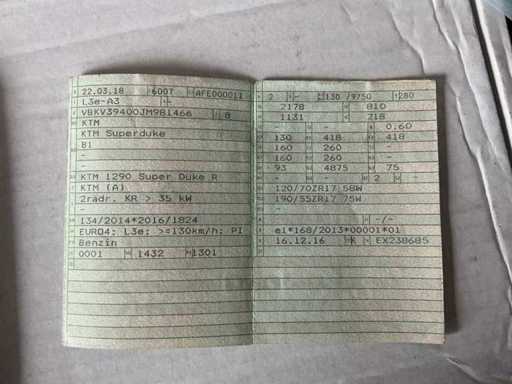 22.03.18 6007 AFE000011
L3e-A3 -
VBKV39400JM981466 8
KTM
KTM Superduke
B1
-
KTM 1290 Super Duke R
KTM (A)
2rädr. KR > 35 kW
-
134/2014*2016/1824
EURO4; L3e; >=130km/h; PI
Benzin
0001 1432 1301
2 - 130 /9750 280
2178 810
1131 718
- - 0.60
130 418 418
160 260 -
160 260 -
93 4875 75
- - 2 -
120/70ZR17 58W
190/55ZR17 75W
- -/-
e1*168/2013*00001*01
16.12.16 K EX238685